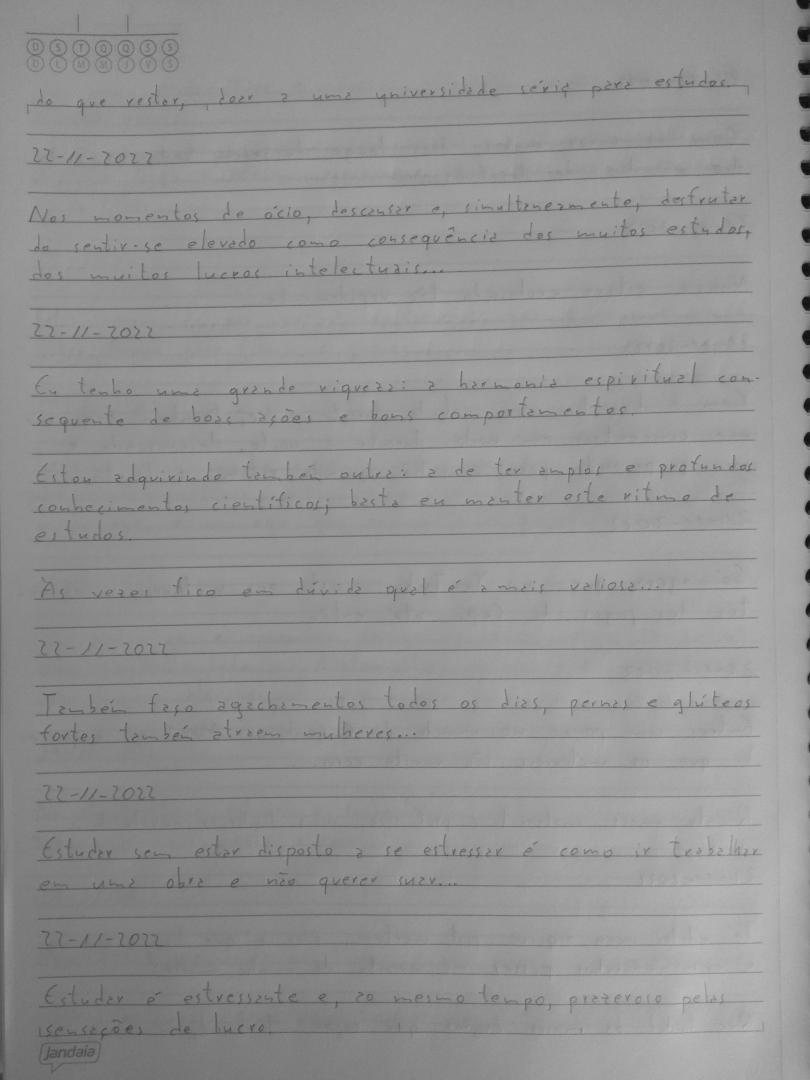 D S T Q Q S S
D L M M J V S
do que restar, doar a uma universidade séria para estudos.
22-11-2022
Nos momentos de ócio, descansar e, simultaneamente, desfrutar
do sentir-se elevado como consequência dos muitos estudos,
dos muitos lucros intelectuais...
22-11-2022
Eu tenho uma grande riqueza: a harmonia espiritual con-
sequente de boas ações e bons comportamentos.
Estou adquirindo também outra: a de ter amplos e profundos
conhecimentos científicos; basta eu manter este ritmo de
estudos.
Às vezes fico em dúvida qual é a mais valiosa...
22-11-2022
Também faço agachamentos todos os dias, pernas e glúteos
fortes também atraem mulheres...
22-11-2022
Estudar sem estar disposto a se estressar é como ir trabalhar
em uma obra e não querer suar...
22-11-2022
Estudar é estressante e, ao mesmo tempo, prazeroso pelas
sensações de lucro.
Jandaia